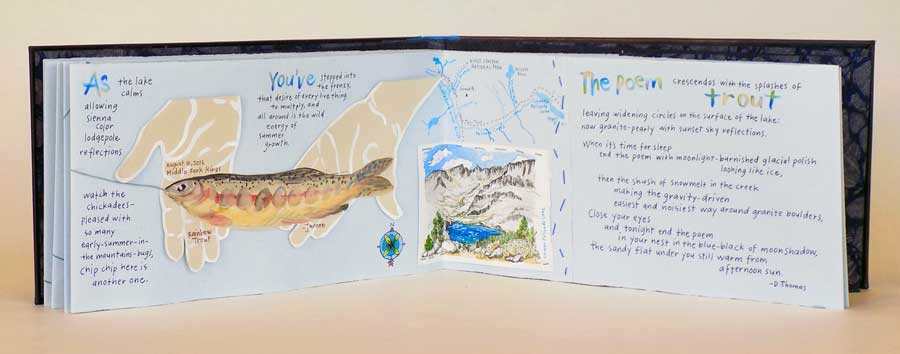 As the lake
calms
allowing
sienna
color
lodgepole
reflections.
watch the
chickadees-
pleased with
so many
early-summer-in-
the mountains-bugs,
chip chip here is
another one.
You've stepped into
the frenzy,
that desire of every live thing
to multiply, and
all around is the wild
energy of
summer
growth.
August 10, 2016
Middle Fork Kings
Rainbow
Trout
KINGS CANYON
NATIONAL PARK
The poem crescendos with the splashes of
trout
leaving widening circles on the surface of the lake:
now granite-pearly with sunset sky reflections.
When it's time for sleep
end the poem with moonlight-burnished glacial polish
looking like ice,
then the shush of snowmelt in the creek
making the gravity-driven
easiest and noisiest way around granite boulders,
Close your eyes
and tonight end the poem
in your nest in the blue-black of moonshadow,
the sandy flat under you still warm from
afternoon sun.
-D. Thomas